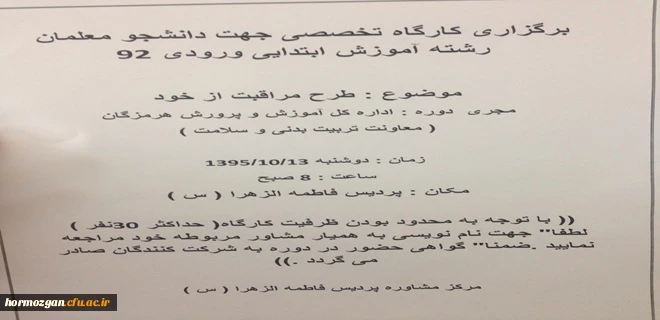 برگزاری کارگاه تخصصی جهت دانشجو معلمان
رشته آموزش ابتدایی ورودی 92
موضوع : طرح مراقبت از خود
مجری دوره : اداره کل آموزش و پرورش هرمزگان
( معاونت تربیت بدنی و سلامت )
زمان : دوشنبه 1395/10/13
ساعت : 8 صبح
مکان : پردیس فاطمه الزهرا ( س )
(( با توجه به محدود بودن ظرفیت کارگاه( حداکثر 30نفر )
لطفا" جهت نام نویسی به همیار مشاور مربوطه خود مراجعه
نمایید .ضمنا" گواهی حضور در دوره به شرکت کنندگان صادر
می گردد .))
مرکز مشاوره پردیس فاطمه الزهرا ( س )
hormozgan.cfu.ac.ir